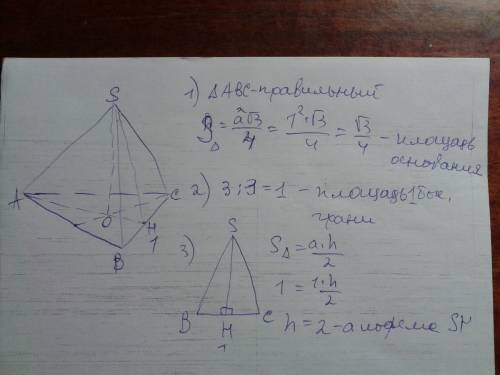 1) ΔABC-правильный
S_Δ = a²√3/4 = 1²·√3/4 = √3/4 - площадь
основания
2) 3:3=1 - площадь 1 бок.
грани
S
A
C
O
H
1
B
3)
S
B
H
C
1
S_Δ = a·h/2
1 = 1·h/2
h = 2 - апофема SH